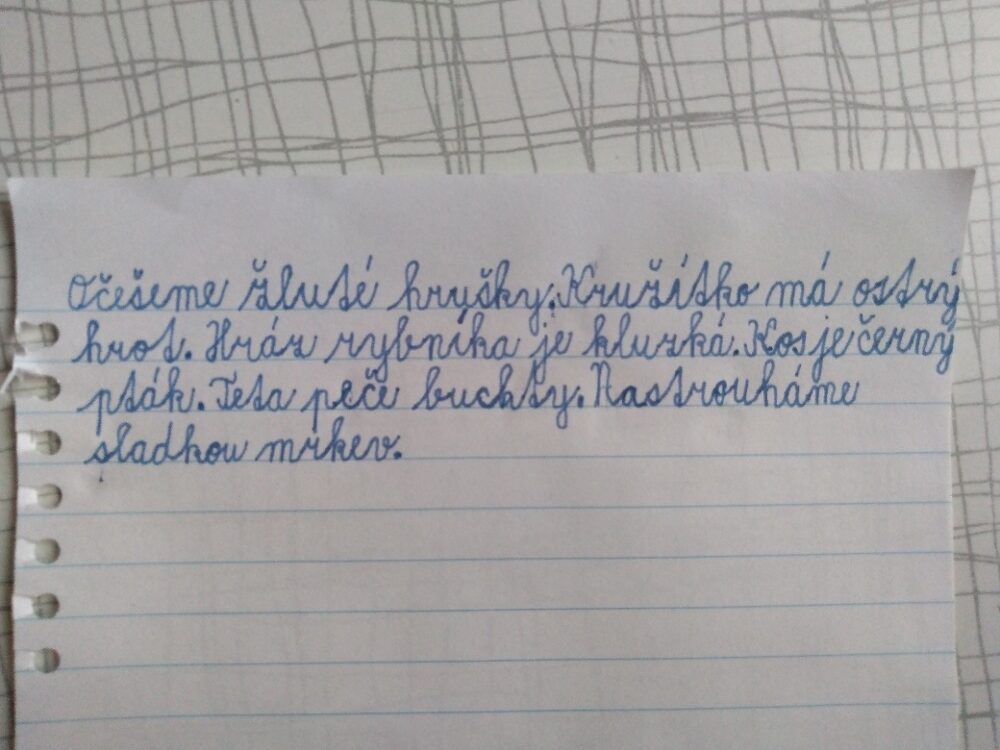 Očešeme žluté hrušky. Kružítko má ostrý
hrot. Hráz rybníka je kluzká. Kos je černý
pták. Teta peče buchty. Nastrouháme
sladkou mrkev.